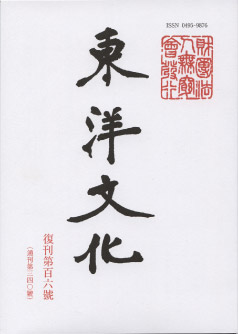 ISSN 0495-9876
財團法
人無窮
會發行
東洋文化
復刊第百六號
(通刊第三四〇號)